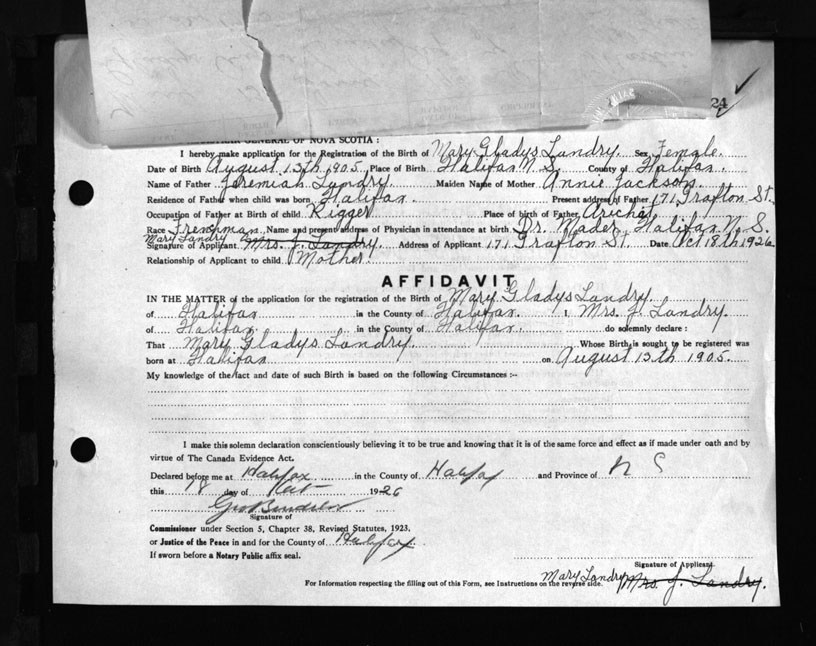 24
GENERAL OF NOVA SCOTIA :
I hereby make application for the Registration of the Birth of Mary Gladys Landry Sex Female
Date of Birth August 13th, 1905 Place of Birth Halifax N.S. County of Halifax
Name of Father Jeremiah Landry Maiden Name of Mother Annie Jackson
Residence of Father when child was born Halifax Present address of Father 171 Grafton St.
Occupation of Father at Birth of child Rigger Place of birth of Father Arichat
Race Frenchman Name and present address of Physician in attendance at birth Dr. Mader, Halifax N.S.
Mary Landry
Signature of Applicant Mrs. J. Landry. Address of Applicant 171 Grafton St. Date Oct 18th 1926
Relationship of Applicant to child Mother.
AFFIDAVIT
IN THE MATTER of the application for the registration of the Birth of Mary Gladys Landry.
of Halifax in the County of Halifax. I, Mrs. J. Landry.
of Halifax. in the County of Halifax. do solemnly declare :
That Mary Gladys Landry. Whose Birth is sought to be registered was
born at Halifax on August 13th 1905.
My knowledge of the fact and date of such Birth is based on the following Circumstances :—
I make this solemn declaration conscientiously believing it to be true and knowing that it is of the same force and effect as if made under oath and by
virtue of The Canada Evidence Act.
Declared before me at Halifax in the County of Halifax and Province of N S
this 18 day of Oct 1926
Signature of
Commissioner under Section 5, Chapter 38, Revised Statutes, 1923.
or Justice of the Peace in and for the County of Halifax
If sworn before a Notary Public affix seal.
Signature of Applicant.
For Information respecting the filling out of this Form, see Instructions on the reverse side. Mary Landry Mrs. J. Landry.